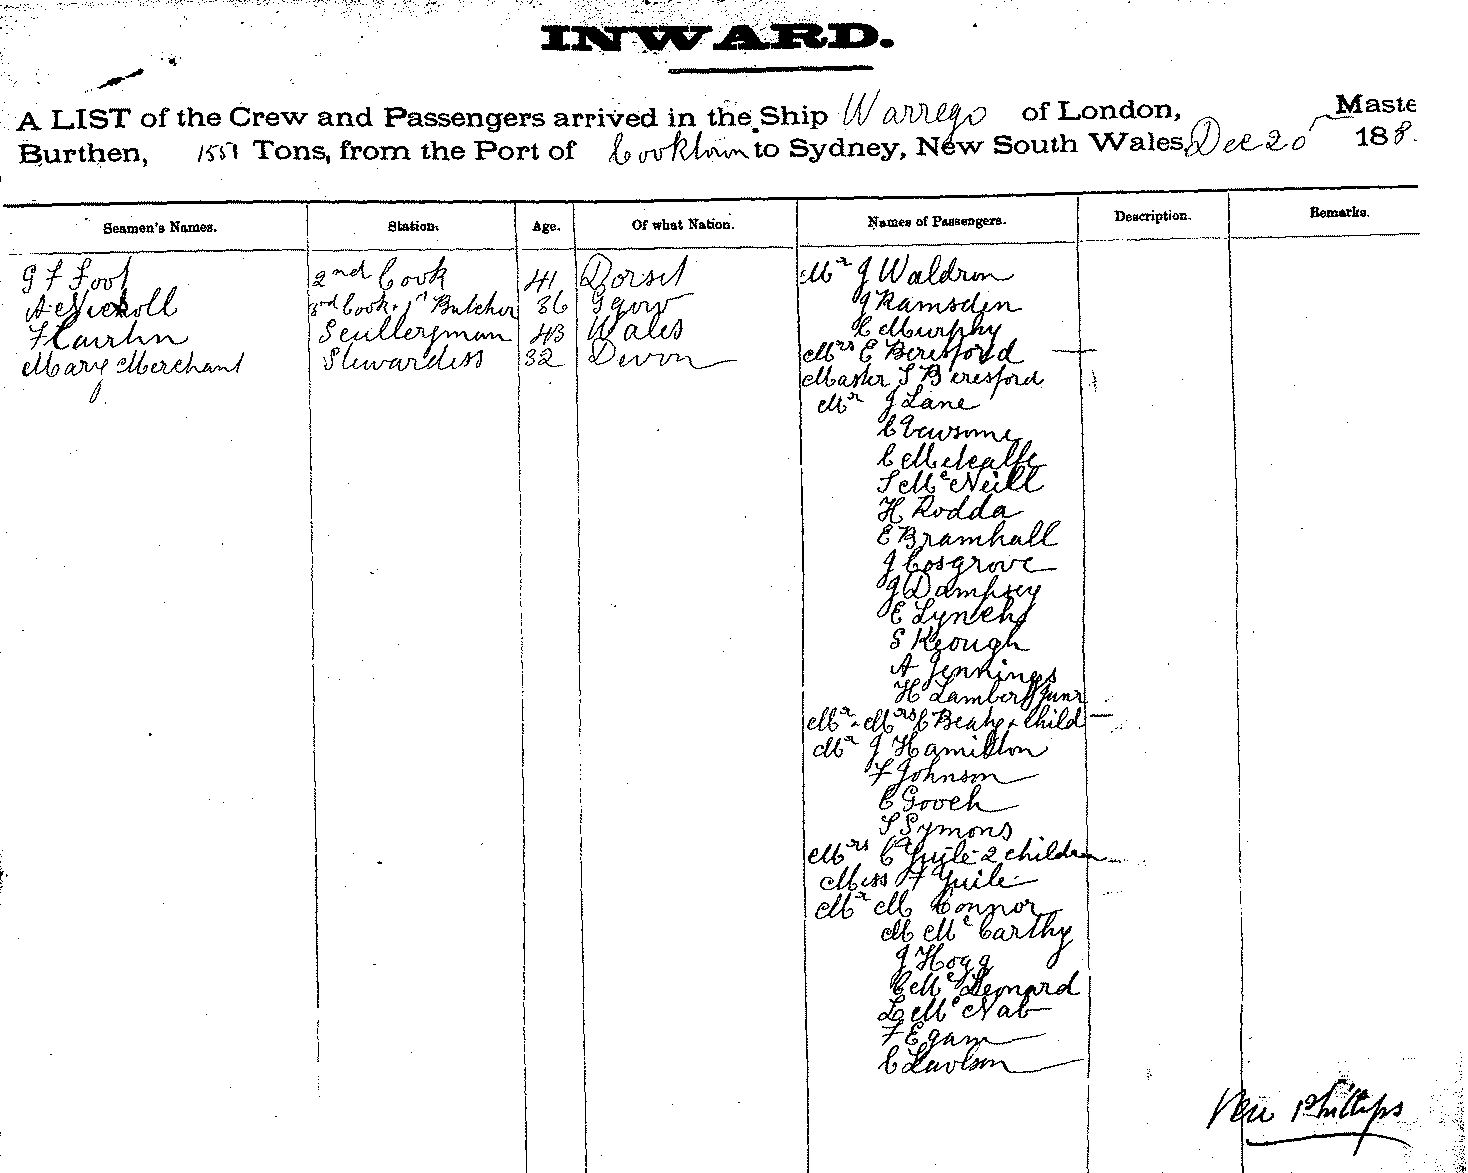 INWARD.
A LIST of the Crew and Passengers arrived in the Ship Warrego of London, Maste
Burthen, 1551 Tons, from the Port of Cooktown to Sydney, New South Wales, Dec 20 188
Seamen's Names. Station. Age. Of what Nation. Names of Passengers. Description. Remarks.
G F Foot 2nd Cook 41 Dorset Mr J Waldron
A Nickoll 3rd Cook & 1st Butcher 36 J Ramsden
Sculleryman 43 Wales C Murphy
Mary Merchant Stewardess 32 Devon Mrs E Beresford
Master S Beresford
Mr J Lane
C
C Metcalfe
S McNeill
H Rodda
E Bramhall
J Cosgrove
J Dampsey
E Lynch
S Keough
A Jennings
H Lambert Junr
Mr & Mrs C & Child
Mr J Hamilton
F Johnson
C Gooch
S Symons
Mrs C Guile 2 children
Miss F Guile
Mr M Connor
M McCarthy
J Hogg
C McLeonard
L McNab
F Egam
C
Phillips